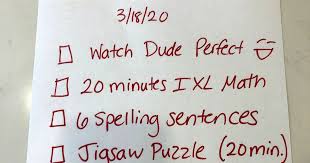 3/18/20
Watch Dude Perfect
20 minutes IXL Math
6 spelling sentences
Jigsaw Puzzle (20min.)